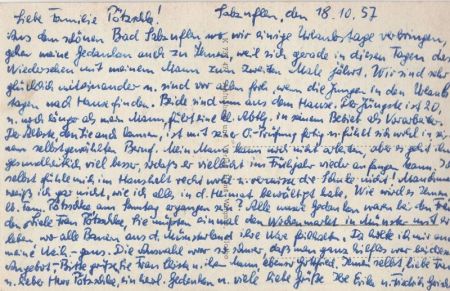 Liebe Familie Pötzschke! Salzuflen, den 18.10.57
Aus dem schönen Bad Salzuflen wo wir einige Urlaubstage verbringen,
gehen meine Gedanken auch zu Ihnen weil sich gerade in diesen Tagen das
Wiedersehen mit meinem Mann zum zweiten Male jährt. Wir sind sehr
glücklich miteinander u. sind vor allen froh, wenn die Jungen in den Urlaubs
tagen nach Hause finden. Beide sind aus dem Hause. Der Jüngste ist 20,
u. noch länger als mein Mann, führt eine kl. Abtlg. in seinem Betrieb als Vorarbeiter.
Der Älteste, den Sie auch kennen, ist mit seiner Prüfung fertig u. fühlt sich wohl in sei
nem selbstgewählten Beruf. Mein Mann kann noch nicht arbeiten aber es geht ihm
gesundheitlich viel besser, sodass er vielleicht im Frühjahr wieder anfangen kann. Ich
selbst fühle mich im Haushalt recht wohl u. vermisse die Schule nicht! Manchmal
weiß ich gar nicht, wie ich alles in d. Heimat bewältigt habe. Wie wird es Ihnen
lb. Fam. Pötzschke am Samstag ergangen sein? Alle unsere Gedanken waren bei den
Liebe Frau Pötzschke, Sie müssen einmal den Weidemarkt in Münster mit er
leben, wo alle Bauern aus d. Münsterland ihre feilhalten. Da holte ich mir auch
meine Weih- gans. Die Auswahl war so schwer, dass man ganz hilflos war bei dem
Angebot. Bitte grüßen Sie Frau u. Ihnen selbst liebe Frau
u. lieber Herr Pötzschke, ein herzl. Gedenken u. viele liebe Grüße Ihre Erika u. Friedrich